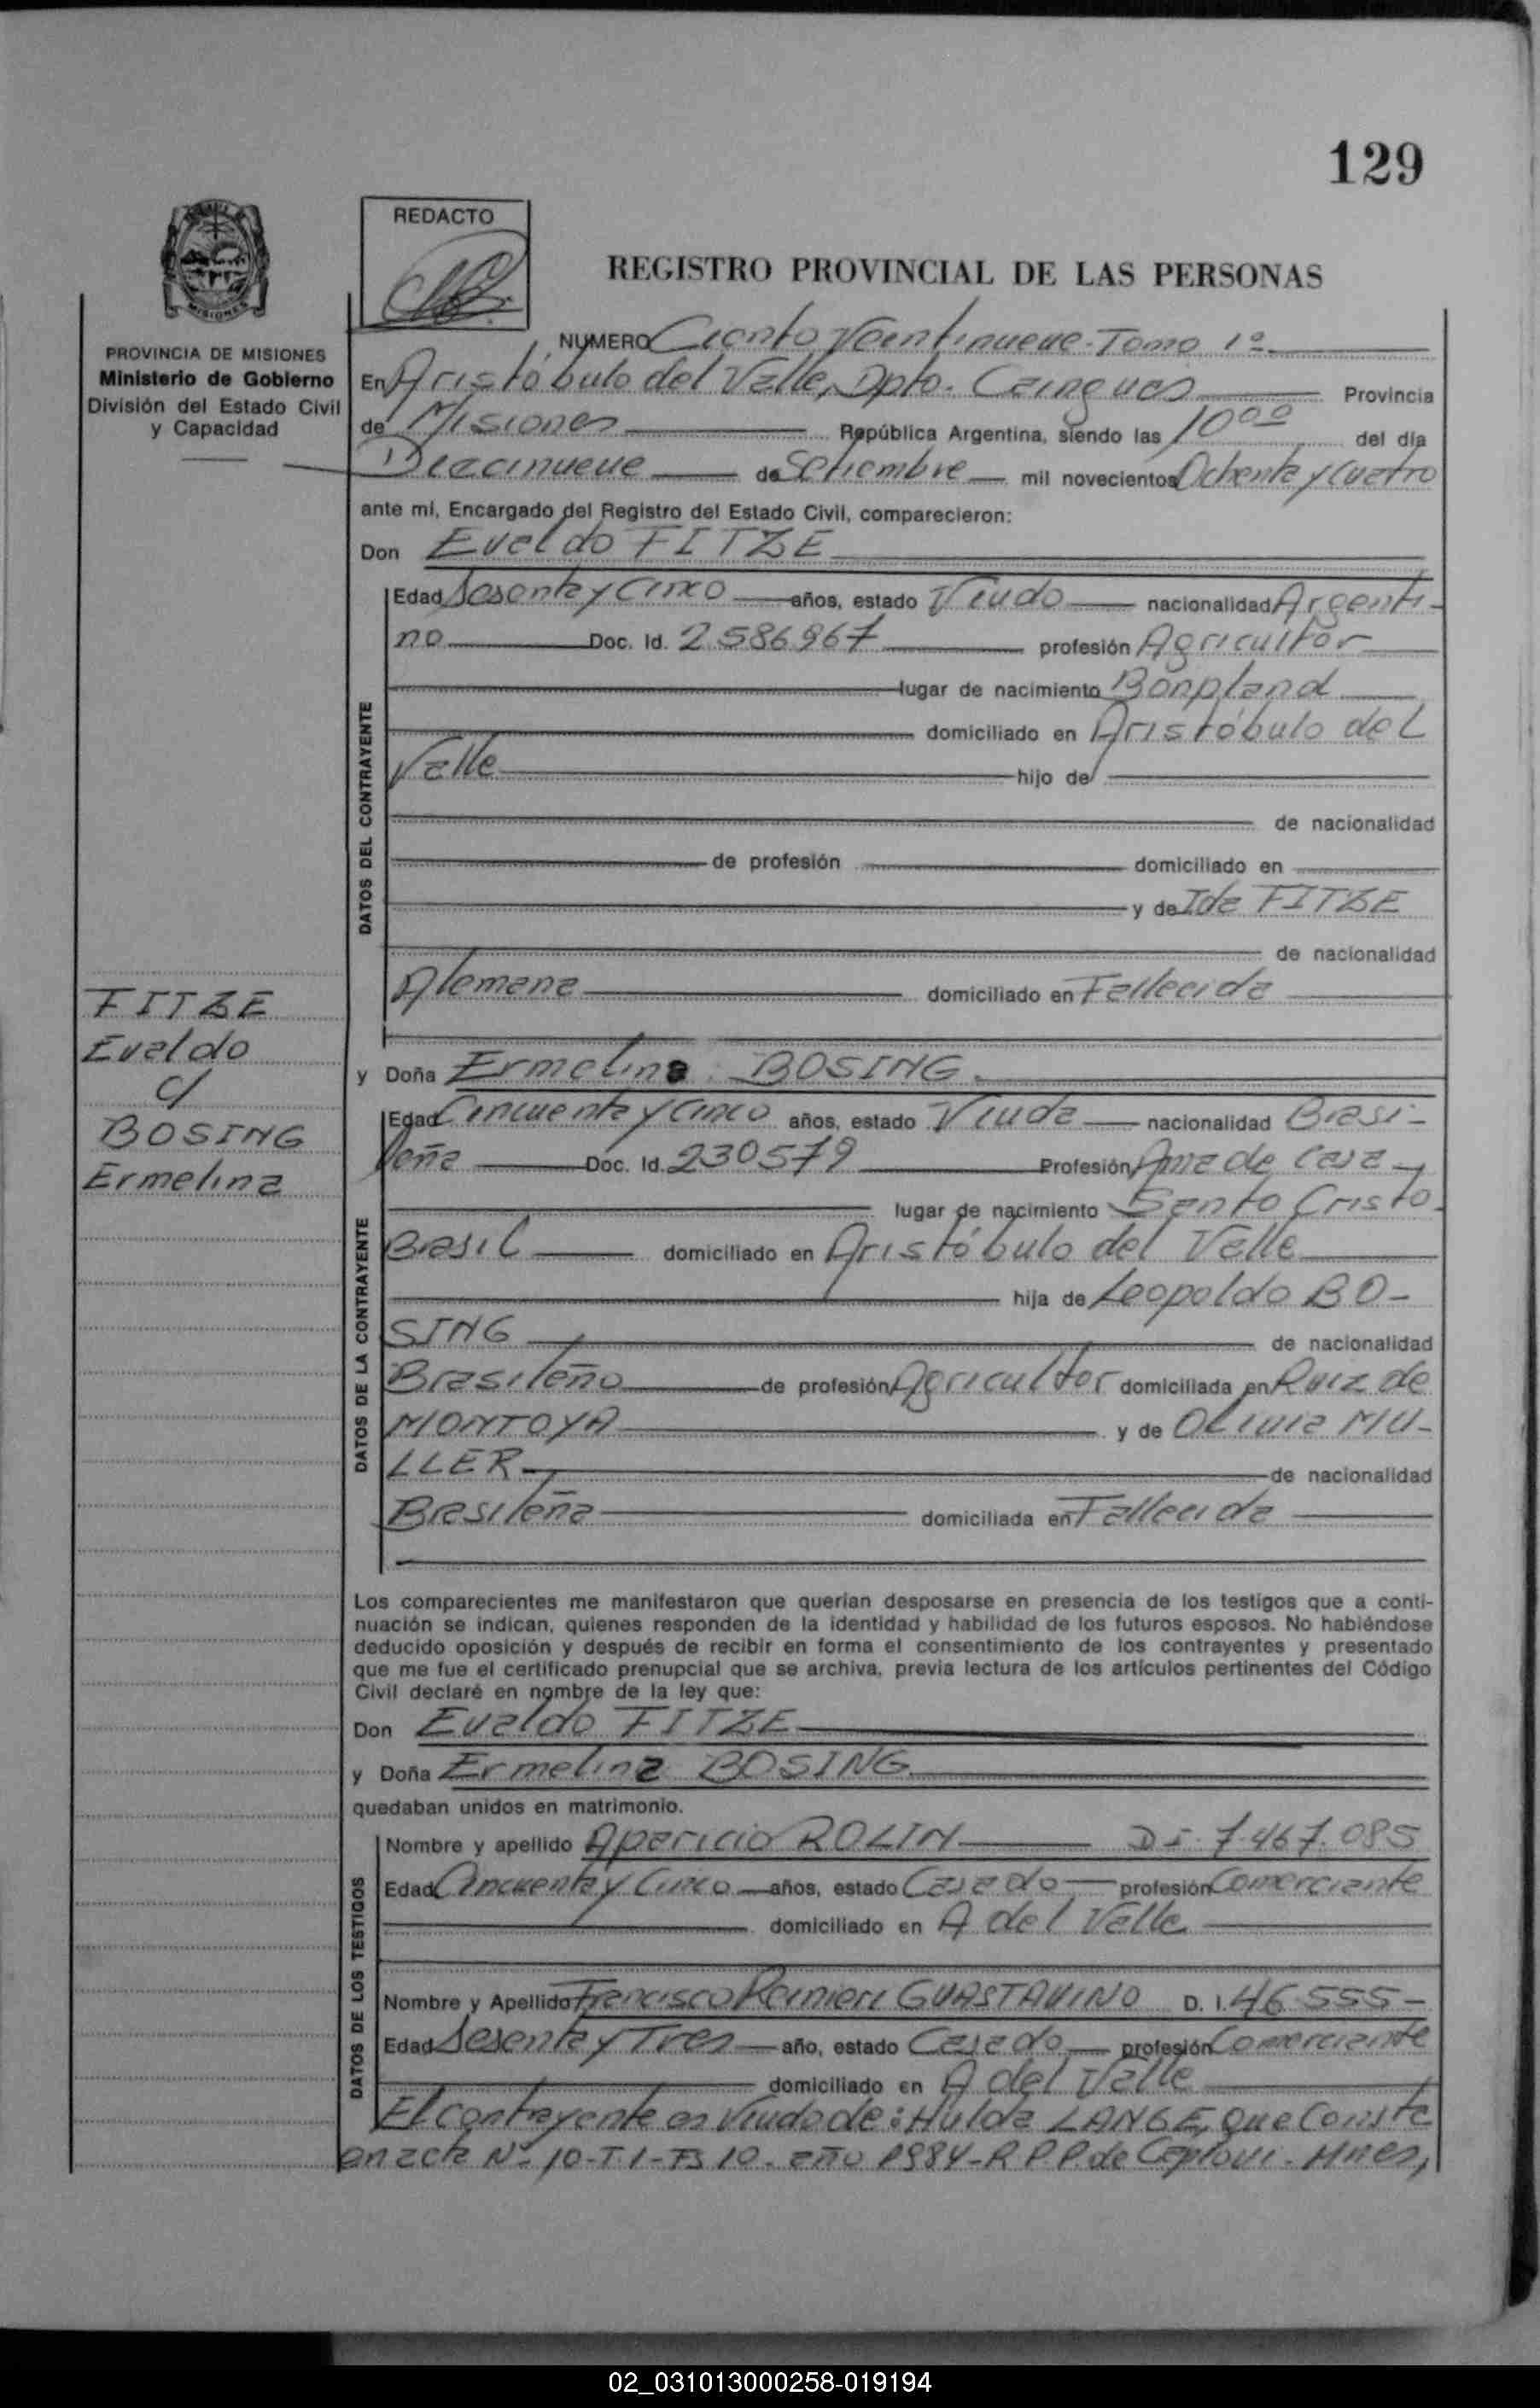 129
REDACTO
REGISTRO PROVINCIAL DE LAS PERSONAS
MISIONES
PROVINCIA DE MISIONES
Ministerio de Gobierno
División del Estado Civil
y Capacidad
NUMERO Ciento Veintinueve - Tomo 1º
En Aristóbulo del Valle, Dpto. Cainguas Provincia
de Misiones República Argentina, siendo las 10 00 del día
Diecinueve de Setiembre mil novecientos Ochenta y Cuatro
ante mí, Encargado del Registro del Estado Civil, comparecieron:
Don Evaldo FITZE
DATOS DEL CONTRAYENTE
Edad Sesenta y Cinco años, estado Viudo nacionalidad Argenti-
no Doc. Id. 2.586.967 profesión Agricultor
lugar de nacimiento Bonpland
domiciliado en Aristóbulo del
Valle hijo de
de nacionalidad
de profesión domiciliado en
y de Ida FITZE
de nacionalidad
Alemana domiciliado en Fallecida
FITZE
Evaldo
c/
BOSING
Ermelina
y Doña Ermelina BOSING
DATOS DE LA CONTRAYENTE
Edad Cincuenta y Cinco años, estado Viuda nacionalidad Brasi-
leña Doc. Id. 230579 Profesión Ama de Casa
lugar de nacimiento Santo Cristo
Brasil domiciliado en Aristóbulo del Valle
hija de Leopoldo BO-
SING de nacionalidad
Brasileño de profesión Agricultor domiciliada en Ruiz de
MONTOYA y de Olivia MU-
LLER de nacionalidad
Brasileña domiciliada en Fallecida
Los comparecientes me manifestaron que querían desposarse en presencia de los testigos que a conti-
nuación se indican, quienes responden de la identidad y habilidad de los futuros esposos. No habiéndose
deducido oposición y después de recibir en forma el consentimiento de los contrayentes y presentado
que me fue el certificado prenupcial que se archiva, previa lectura de los artículos pertinentes del Código
Civil declaré en nombre de la ley que:
Don Evaldo FITZE
y Doña Ermelina BOSING
quedaban unidos en matrimonio.
DATOS DE LOS TESTIGOS
Nombre y apellido Aparicio ROLIN D.I. 7.467.085
Edad Cincuenta y Cinco años, estado Casado profesión Comerciante
domiciliado en A del Valle
Nombre y Apellido Francisco Reinieri GUASTAVINO D. I. 46.555-
Edad Sesenta y Tres año, estado Casado profesión Comerciante
domiciliado en A del Valle
El contrayente es Viudo de: Hulda LANGE, que Consta
en acta Nº 10-T.1-Fs 10. año 1984-R.P.P. de Capiovi. Mnes,
02_031013000258-019194